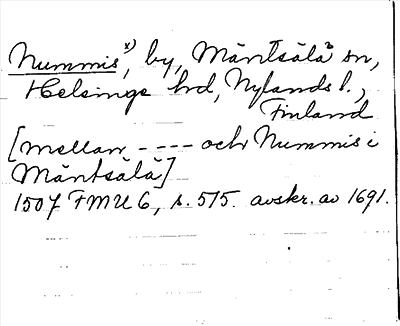 Nummis x), by, Mäntsälä sn,
Helsinge hd, Nylands l.,
Finland
[mellan - - - - och Nummis i
Mäntsälä]
1507 FMU 6, s. 515. avskr. av 1691.